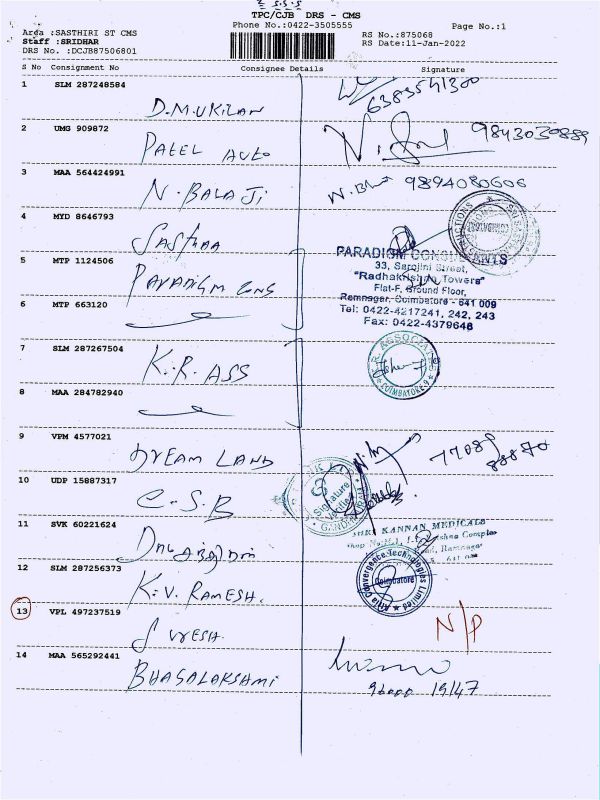 TPC/CJB DRS - CMS
Phone No.:0422-3505555
Page No.:1
Area :SASTHIRI ST CMS
RS No.:875068
Staff :SRIDHAR
RS Date:11-Jan-2022
DRS No. :DCJB87506801
S No Consignment No Consignee Details Signature
1 SLM 287248584
D.M.UKILAN
6383541300
2 UMG 909872
PATEL AUTO
9843030889
3 MAA 564424991
N. BALAJI
9894080606
4 MYD 8646793
SASTHAA
5 MTP 1124506
PARADIGM CONS
PARADIGM CONSULTANTS
33, Sarojini Street,
"Radhakrishna Towers"
Flat-F, Ground Floor,
Ramnagar, Coimbatore - 641 009
Tel: 0422-4217241, 242, 243
Fax: 0422-4379648
6 MTP 663120
7 SLM 287267504
K.R. ASS
K.R. ASSOCIATES
COIMBATORE-9
8 MAA 284782940
9 VPM 4577021
DREAM LAND
77089
88870
10 UDP 15887317
C.S.B
Signature
11 SVK 60221624
SHRI KANNAN MEDICALS
Ramnagar
12 SLM 287256373
K.V. RAMESH.
Convergence Technologies Limited
Coimbatore
13 VPL 497237519
SURESH.
N/P
14 MAA 565292441
BHAGALAKSHMI
96000 19147